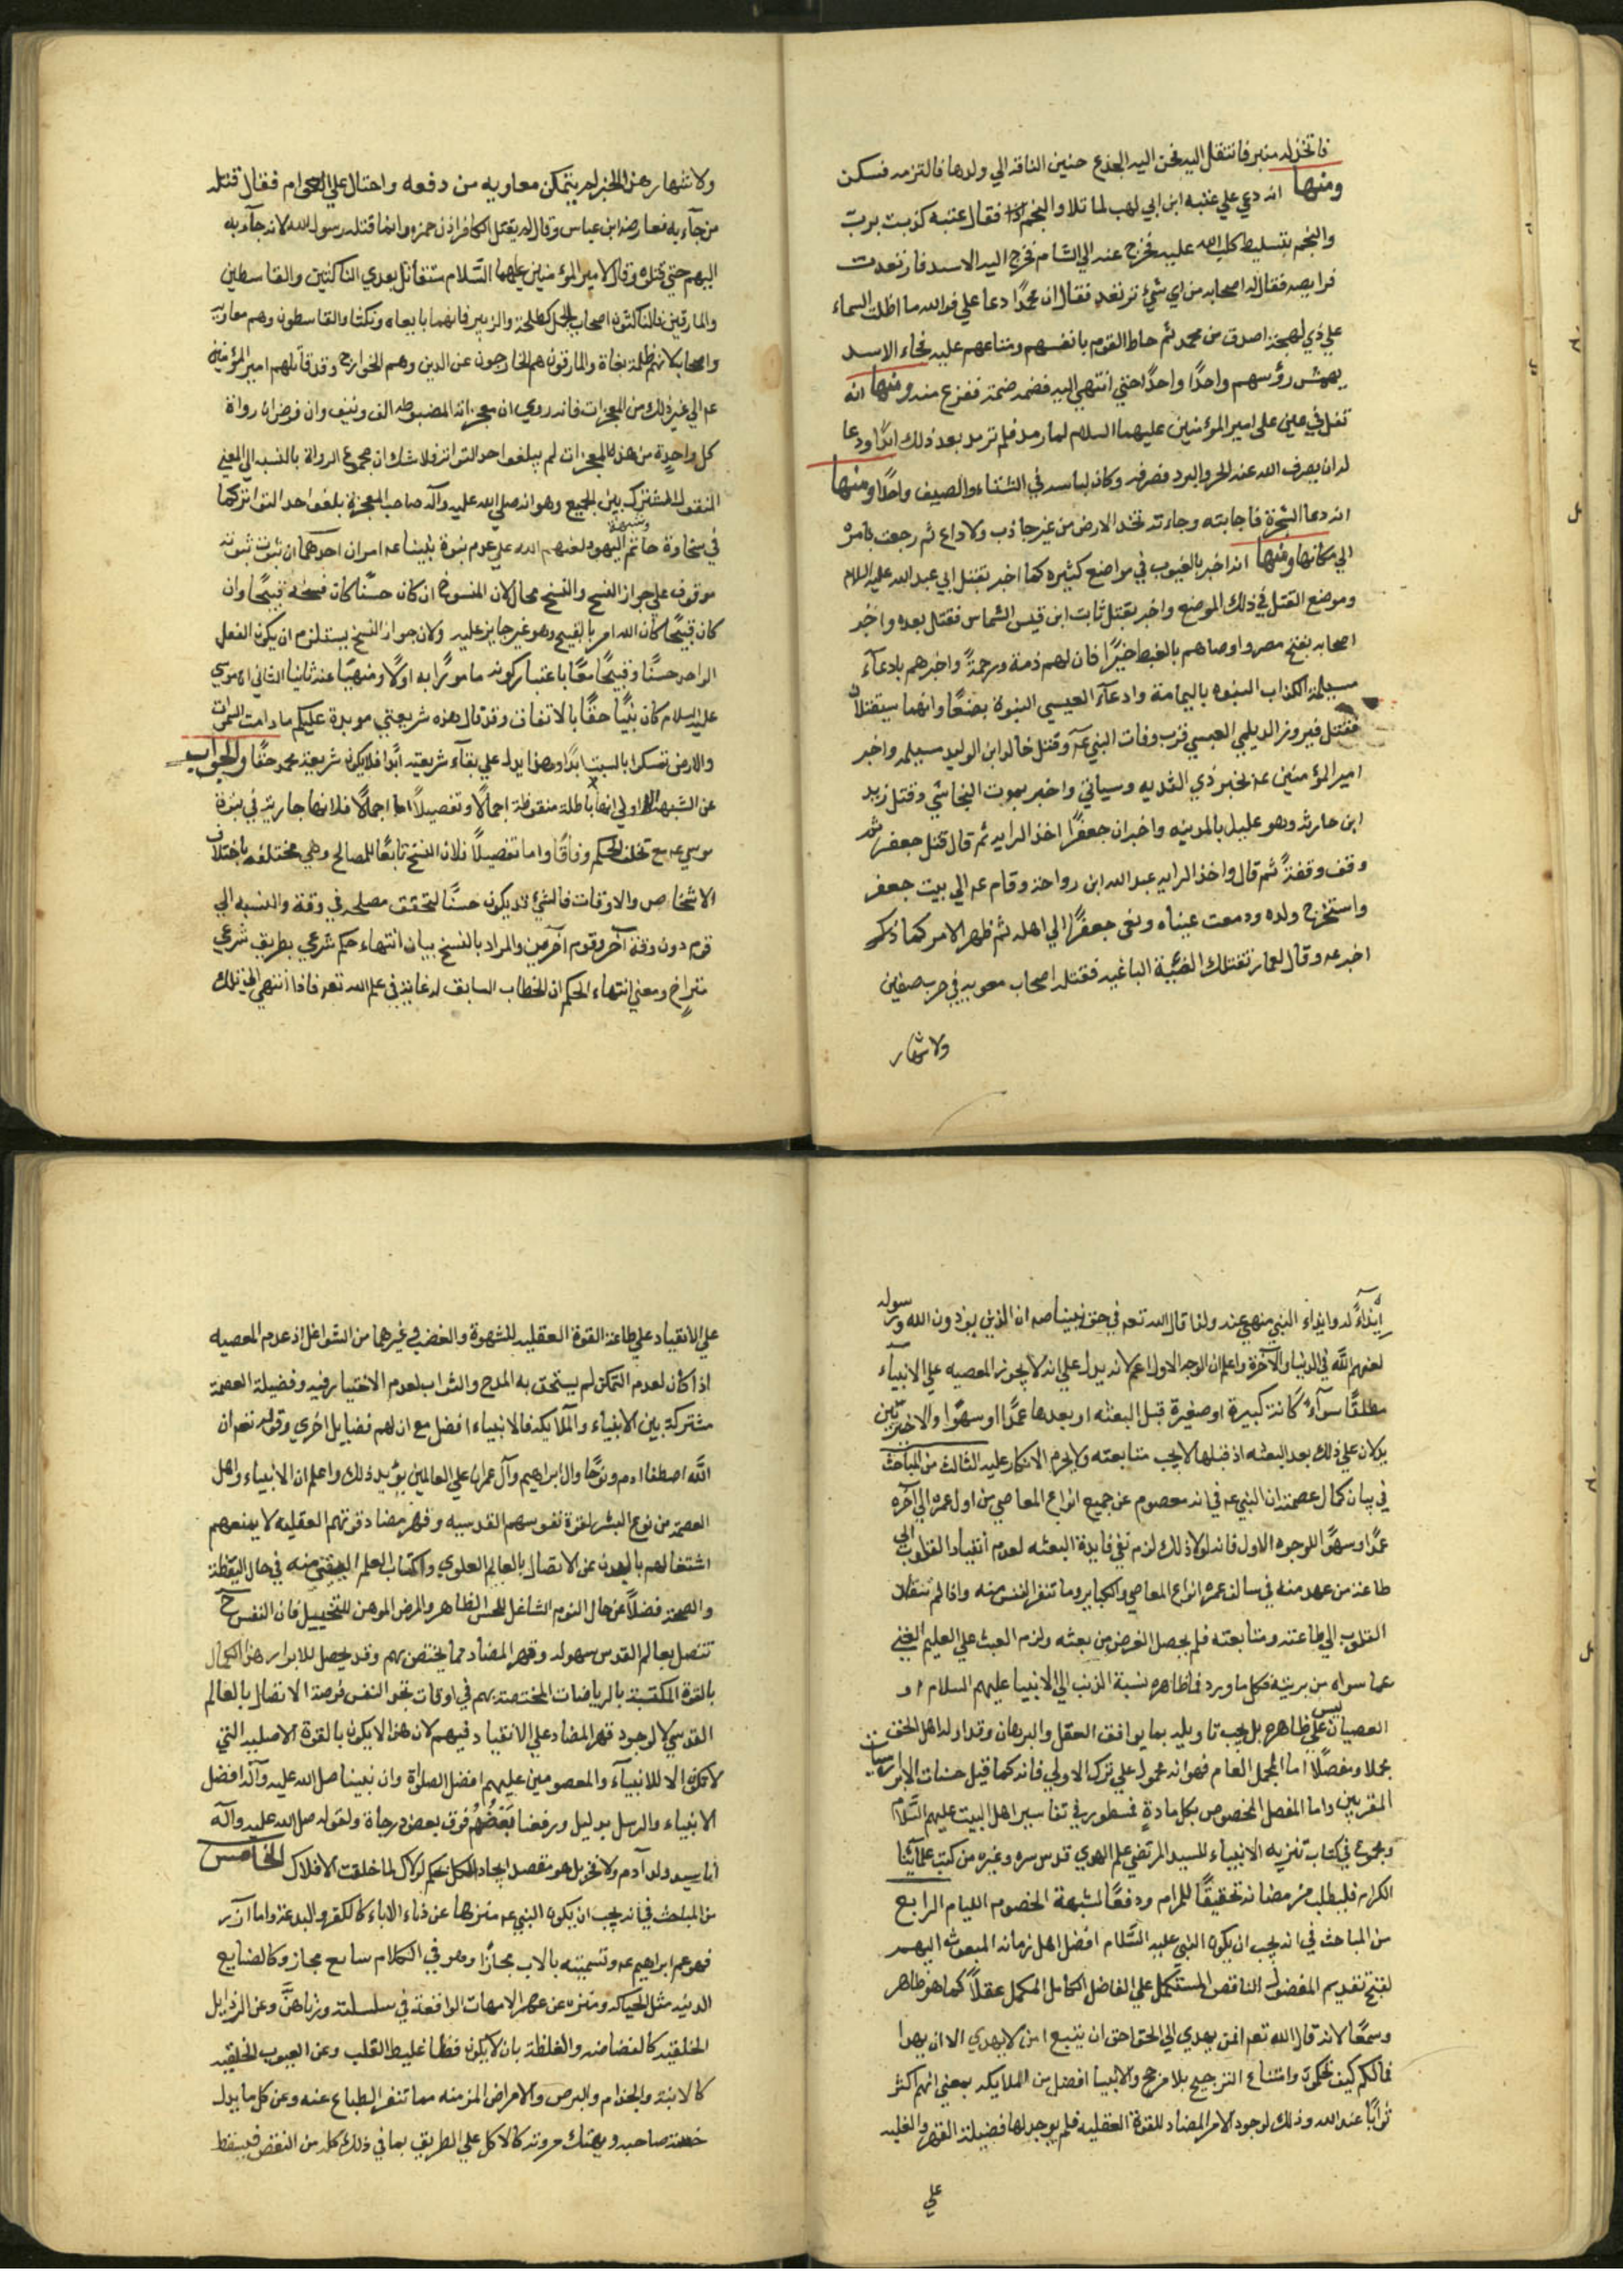 فاتخذ له منبر فانتقل اليه فحن اليه الجذع حنين الناقة الي ولدها فالتزمه فسكن
ومنها انه دعي علي عتبه ابن ابي لهب لما تلا والنجم اذا فقال عتبه كذبت برب
والنجم بتسليط كلب الله عليه فخرج عنه الي الشام فخرج اليه الاسد فارتعدت
فرايصه فقال له اصحابه من اي شئ ترتعد فقال ان محمدًا دعا علي فوالله ما اظلت السماء
علي ذي لهجة اصدق من محمد ثم حاط القوم بانفسهم ومتاعهم عليه فجاء الاسد
يهمش رؤسهم واحدًا واحدًا حتي انتهي اليه فضمه ضمة ففزع منه ومنها انه
تفل في عيني علي امير المؤمنين عليهما السلام لما رمد فلم ترمد بعد ذلك ابدًا ودعا
له ان يصرف الله عنه الحر والبرد فصرفه وكان لباسه في الشتاء والصيف واحدًا ومنها
انه دعا الشجرة فاجابته وجاءته تخد الارض من غير جاذب ولا دافع ثم رجعت بامره
الي مكانها ومنها انه اخبر بالغيوب في مواضع كثيره كما اخبر بقتل ابي عبد الله عليه السلام
وموضع القتل في ذلك الموضع واخبر بقتل ثابت ابن قيس الشماس فقتل بعده واخبر
اصحابه بفتح مصر واوصاهم بالقبط خيرًا فان لهم ذمة ورحمةً واخبرهم بادعآء
مسيلمة الكذاب النبوه باليمامة وادعآء العبسي النبوة بصنعا وانهما سيقتلان
فقتل فيروز الديلمي العبسي قرب وفات النبي عم وقتل خالد ابن الوليد مسيلمه واخبر
امير المؤمنين عم بخبر ذي الثديه وسياتي واخبر بموت النجاشي وقتل زيد
ابن حارثه وهو عليل بالمدينه واخبر ان جعفرًا اخذ الرايه ثم قال قتل جعفر ثم
وقف وقفةً ثم قال واخذ الرايه عبد الله ابن رواحه وقام عم الي بيت جعفر
واستخرج ولده ودمعت عيناه ونعي جعفرًا الي اهله ثم ظهر الامر كما ذكر
اخبر عم وقال لعمار تقتلك الفئية الباغيه فقتله اصحاب معويه في حرب صفين
ولاشتهار
ولاشتهار هذا الخبر لم يتمكن معاويه من دفعه واحتال علي العوام فقال قتله
من جآء به فعارضه ابن عباس وقال لم يقتل الكافر اذن حمزه وانما قتله رسول الله لانه جآء به
اليهم حتي قتلوه وقال لامير المؤمنين عليهما السّلام ستقاتل بعدي الناكثين والقاسطين
والمارقين فالناكثون اصحاب الجمل كطلحة والزبير فانهما بايعاه ونكثا والقاسطون وهم معاويه
واصحابه لانهم ظلمة بغاة والمارقون هم الخارجون عن الدين وهم الخوارج وقد قاتلهم امير المؤمنين
عم الي غير ذلك من المعجزات فانه روي ان معجزاته المضبوطه الف ونيف وان فرض ان رواة
كل واحدة من هذه المعجزات لم يبلغوا حد التواتر فلا شك ان مجموع الرواة بالنسبه الي المعني
المنقول المشترك بين الجميع وهو انه صلي الله عليه وآله صاحب المعجزة بلغوا حد التواتر كما
في سخاوة حاتم وشبهة اليهود لعنهم الله علي عدم نبوة نبينا عم امران احدهما ان ثبوت نبوته
موقوف علي جواز النسخ والنسخ محال لان المنسوخ ان كان حسنًا كان نسخه قبيحًا وان
كان قبيحًا كان الله امر بالقبيح وهو غير جايز عليه ولان جواز النسخ يستلزم ان يكون الفعل
الواحد حسنًا وقبيحًا معًا باعتبار كونه مامورًا به اولًا ومنهيًا عنه ثانيا الثاني ان موسي
عليه السلام كان نبيًا حقًا بالاتفاق وقد قال هذه شريعتي موبدة عليكم ما دامت السموات
والارض تمسكوا بالسبت ابدًا وهذا يدل علي بقاء شريعته ابدًا فلا يكون شريعة محمد حقًا والجواب
عن الشبهة الاولي انها باطلة منقوضة اجمالًا وتفصيلًا اما اجمالًا فلانها جارية في نبوة
موسي عم مع تخلف الحكم وفاقًا واما تفصيلًا فلان النسخ تابعًا للمصالح وهي مختلفه باختلاف
الاشخاص والاوقات فالشئ قد يكون حسنًا لتحقق مصلحه في وقته والنسبه الي
قوم دون وقت آخر وقوم آخرين والمراد بالنسخ بيان انتهاء حكم شرعي بطريق شرعي
متراخ ومعني انتهاء الحكم ان الخطاب السابق له غاية في علم الله تعه فاذا انتهي الي تلك
ايذاءً له وايذاء النبي منهي عنه ولذا قال الله تعه في حق نبينا صه ان الذين يوذون الله ورسوله
لعنهم اللّٰه في الدنيا والآخرة واعلم ان الوجه الاول اعم لانه يدل علي انه لا يجوز المعصيه علي الانبيآء
مطلقًا سوآء كانت كبيرة او صغيرة قبل البعثه او بعدها عمدًا او سهوًا والاخيرين
يدلان علي ذلك بعد البعثه اذ قبلها لا يجب متابعته ولا يحرم الانكار عليه الثالث من المباحث
في بيان كمال عصمته ان النبي عم في انه معصوم عن جميع انواع المعاصي من اول عمره الي آخره
عمدًا وسهوًا للوجوه الاول فانه لولا ذلك لزم نفي فايدة البعثه لعدم انقياد القلوب الي
طاعة من عهد منه في سالف عمره انواع المعاصي والكباير وما تنفر النفس منه واذا لم تنقاد
القلوب الي طاعته ومتابعته فلم يحصل الغرض من بعثه ولزم العبث علي العليم الغني
عما سواه من بريته فكل ما ورد فظاهره نسبة الذنب الي الانبيا عليهم السلام او
العصيان ليس علي ظاهره بل يجب تاويله بما يوافق العقل والبرهان وقد اوله اهل الحق
مجملًا ومفصلًا اما المجمل العام فهو انه محمول علي ترك الاولي فانه كما قيل حسنات الابرار سيئات
المقربين واما المفصل المخصوص بكل مادة فمسطور في تفاسير اهل البيت عليهم السّلام
ومجموع في كتاب تنزيه الانبياء للسيد المرتضي علم الهدي قدس سره وغيره من كتب علمائنا
الكرام فليطلب من مضانه تحقيقًا للمرام ودفعًا لشبهة الخصوم الليام الرابع
من المباحث في انه يجب ان يكون النبي عليه السّلام افضل اهل زمانه المبعوث اليهم
لقبح تقديم المفضول الناقص المستكمل علي الفاضل الكامل المكمل عقلًا كما هو ظاهر
وسمعًا لانه قال الله تعه افمن يهدي الي الحق احق ان يتبع امن لا يهدي الا ان يهدا
فما لكم كيف تحكمون وامتناع الترجيح بلا مرجح والانبيا افضل من الملايكه بمعني انهم اكثر
ثوابًا عند الله وذلك لوجود الامر المضاد للقوة العقليه فلم يوجد لها فضيلة القهر والغلبه
علي
علي الانقياد علي طاعة القوة العقليه للشهوة والغضب في غيرهما من الشواغل اذ عدم المعصيه
اذا كان لعدم التمكن لم يستحق به المدح والثواب لعدم الاختيار فيه وفضيلة العصمة
مشتركة بين الانبياء والملايكه فالانبياء افضل مع ان لهم فضايل اخري وقوله تعه ان
اللّٰه اصطفا ادم ونوحًا وال ابراهيم وآل عمران علي العالمين يؤيد ذلك واعلم ان الانبياء واهل
العصمة من نوع البشر لقوة نفوسهم القدسيه وقهر مضاد قوتهم العقليه لا يمنعهم
اشتغالهم بالبدن عن الاتصال بالعالم العلوي واكتساب العلم اليقيني منه في حال اليقظة
والصحة فضلًا عن حال النوم الشاغل للحس الظاهر والمرض الموهن للتخييل فان النفس ح
تتصل بعالم القدس سهوله وقهر المضاد مما يختص بهم وقد يحصل للابرار هذا الكمال
بالقوة المكتسبة بالرياضات المختصة بهم في اوقات نحو النفس فرصة الاتصال بالعالم
القدسي لا لوجود قهر المضاد علي الانقياد فيهم لان هذا لا يكون بالقوة الاصليه التي
لا تكون الا للانبيآء والمعصومين عليهم افضل الصلواة وان نبينا صل الله عليه وآله افضل
الانبياء والرسل بدليل ورفعنا بَعضُهُم فوق بعض درجاة ولقوله صل الله عليه وآله
انا سيد ولد آدم ولا فخر بل هو مقصد ايجاد الكل بحكم لولاك لما خلقت الافلاك الخامس
من المباحث في انه يجب ان يكون النبي عم منزها عن دناء الاباء كالكفر والبدعة واما آزر
فهو عم ابراهيم عم وتسميته بالاب مجازًا وهو في الكلام سايع مجاز وكالصنايع
الدنيه مثل الحياكه ومنزه عن عهر الامهات الواقعة في سلسلته وزناهنَّ وعن الرذايل
الخلقيه كالفضاضه والغلظة بان لا يكون فظا غليظ القلب وعن العيوب الخلقيه
كالابنة والجذام والبرص والامراض المزمنه مما تنفر الطباع عنه وعن كل ما يدل
خسة صاحبه ويهتك مروته كالاكل علي الطريق بما في ذلك كله من النقص فيسقط